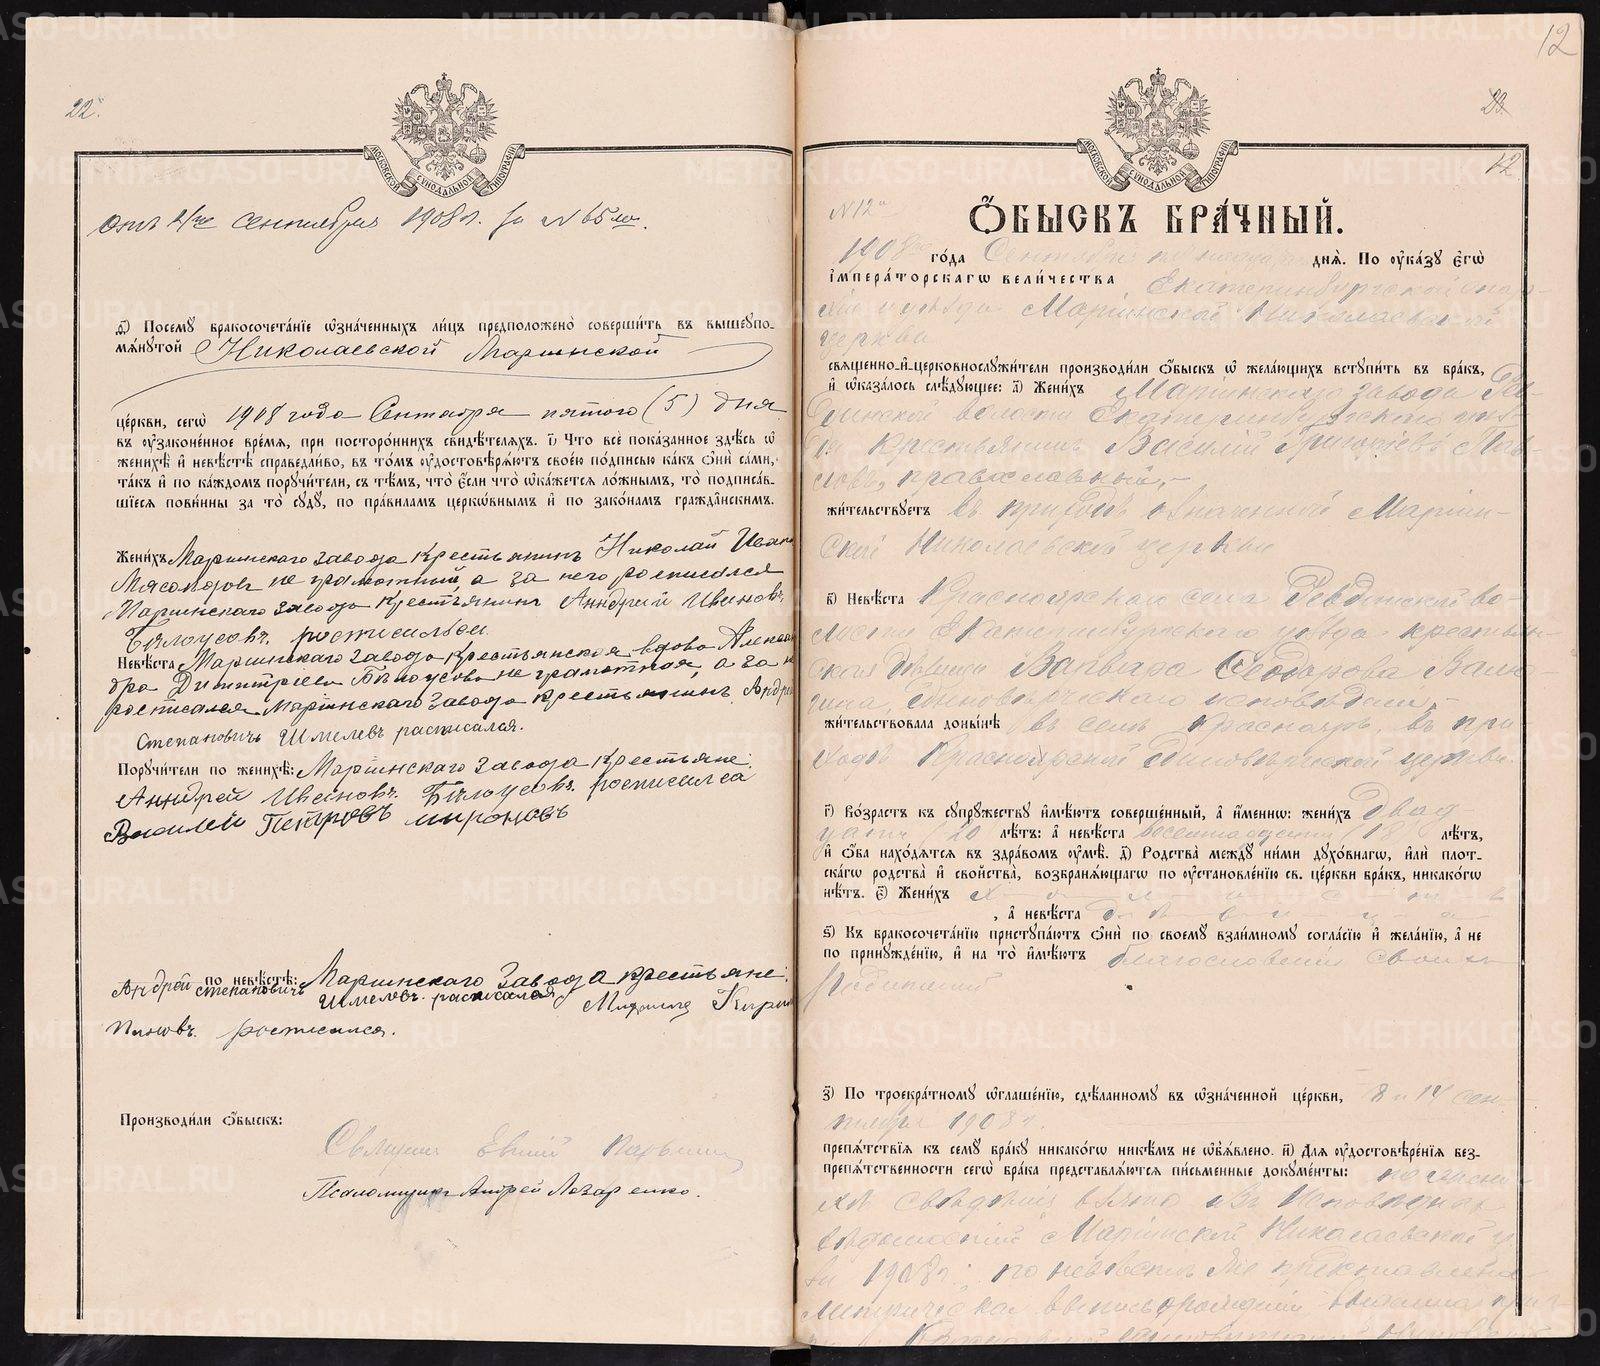 22.
отъ 4го Сентября 1908 г. за №
Д҃) Посемꙋ бракосочета́нїе ѡ҆зна́ченныхъ ли́цъ предположено̀ соверши́ть въ вышеꙋпо-
мѧ́нꙋтой Николаевской Маріинской
це́ркви, сегѡ̀ 1908 года Сентября пятого (5) дня
въ ᲂу҆зако́не́нное вре́мѧ, при посторо́ннихъ свидѣ́телѧхъ. І҃) Что̀ всѐ пока́занное здѣ́сь ѡ҆
женихѣ̀ и҆ невѣ́стѣ справедли́во, въ то́мъ ᲂу҆достовѣрѧ́ютъ свое́ю по́дписью ка́къ ѻ҆нѝ са́ми,
та́къ и҆ по ка́ждомъ порꙋчи́тели, съ тѣ́мъ, что̀ є҆́сли что̀ ѡ҆ка́жетсѧ ло́жнымъ, то̀ подписа́в-
шїесѧ пови́нны за то̀ сꙋдꙋ̀, по пра́виламъ церко́внымъ и҆ по зако́намъ гражда́нскимъ.
Жени́хъ Маринскаго завода Крестьянинъ Николай Иван
Мясоѣдовъ не грамотный а за него росписался
Маринскаго завода крестьянинъ Анндрей Ивановъ
Бѣлоусовъ. росписался
Невѣ́ста Маринскаго Завода Крестьянская вдова Алексан
дра Димитриева Бѣлоусова не грамотная, а за н
росписался Маринскаго завода крестьянинъ Андре
Степановичъ Шмелевъ расписался.
Порꙋчи́тели по женихѣ̀: Маринскаго завода Крестьяне:
Анндрей Ивановъ. Бѣлоусовъ росписился
Василей Петровъ мироновъ
по невѣ́стѣ: Маринскаго завода крестьяне:
Андрей степановичъ Шмелевъ. расписался
росписался.
Производи́ли ѻ҆́быскъ:
Священникъ
Псаломщикъ Андрей Лазаренко.
12
22
12
МОСКОВСКОЙ СѴНОДАЛЬНОЙ ТИПОГРАФІИ
МОСКОВСКОЙ СѴНОДАЛЬНОЙ ТИПОГРАФІИ
№ 12й
Ѻ҆́БЫСКЪ БРА́ЧНЫЙ.
1908 го́да Сентября днѧ̀. По ᲂу҆ка́зꙋ Є҆гѡ̀
І҆мпера́торскагѡ вели́чества, Екатеринбургской епар-
хіи и уѣзда Маріинской Николаевской
церкви
свѧще́нно-и҆-церковнослꙋжи́тели производи́ли ѻ҆́быскъ ѡ҆ жела́ющихъ встꙋпи́ть въ бра́къ,
и҆ ѡ҆каза́лось слѣ́дꙋющее: А҃) Жени́хъ Маріинскаго завода Рев-
динской волости Екатеринбургскаго уѣз-
да крестьянинъ Василій Григорьевъ Пав-
ловъ, православный,-
жи́тельствꙋетъ въ приходѣ означенной Маріин-
ской Николаевской церкви
В҃) Невѣ́ста Красноярскаго села Ревдинской во-
лости Екатеринбургскаго уѣзда крестьян-
ская дѣвица Варвара Ѳеодорова
единовѣрческаго исповѣданія,-
жи́тельствовала доны́нѣ въ селѣ Краснояръ, въ при-
ходѣ Красноярской единовѣрческой церкви.
Г҃) Во́зрастъ къ сꙋпрꙋ́жествꙋ и҆мѣ́ютъ соверше́нный, а҆ и҆́меннѡ: жени́хъ Двад-
цати (20 лѣ́тъ: а҆ невѣ́ста восемнадцати (18) лѣ́тъ,
и҆ ѻ҆́ба нахо́дѧтсѧ въ здра́вомъ ᲂу҆мѣ̀. Д҃) Родства̀ междꙋ̀ ни́ми дꙋхо́внагѡ, и҆лѝ пло́т-
скагѡ родства̀ и҆ сво́йства, возбранѧ́ющагѡ по ᲂу҆становле́нїю св. це́ркви бра́къ, никако́гѡ
нѣ́тъ. Є҃) Жени́хъ х о л о с т ъ
, а҆ невѣ́ста д ѣ в и ц а
Ѕ҃) Къ бракосочета́нїю пристꙋпа́ютъ ѻ҆нѝ по своемꙋ̀ взаи́мномꙋ согла́сїю и҆ жела́нїю, а҆ не
по принꙋжде́нїю, и҆ на то̀ и҆мѣ́ютъ благословеніе своихъ
родителей
З҃) По троекра́тномꙋ ѡ҆глаше́нїю, сдѣ́ланномꙋ въ ѡ҆зна́ченной це́ркви, 8 и 14 сен-
тября 1908 г.
препѧ́тствїѧ къ семꙋ̀ бра́кꙋ никако́гѡ никѣ́мъ не ѡ҆б̾ѧ́влено. И҃) Для ᲂу҆достовѣре́нїѧ без-
препѧ́тственности сегѡ̀ бра́ка представлѧ́ютсѧ пи́сьменные докꙋме́нты: по жени-
хѣ свѣдѣніе взято изъ Исповѣдныхъ
Маріинской Николаевской
1908 г.; по невѣстѣ представлена
METRIKI.GASO-URAL.RU